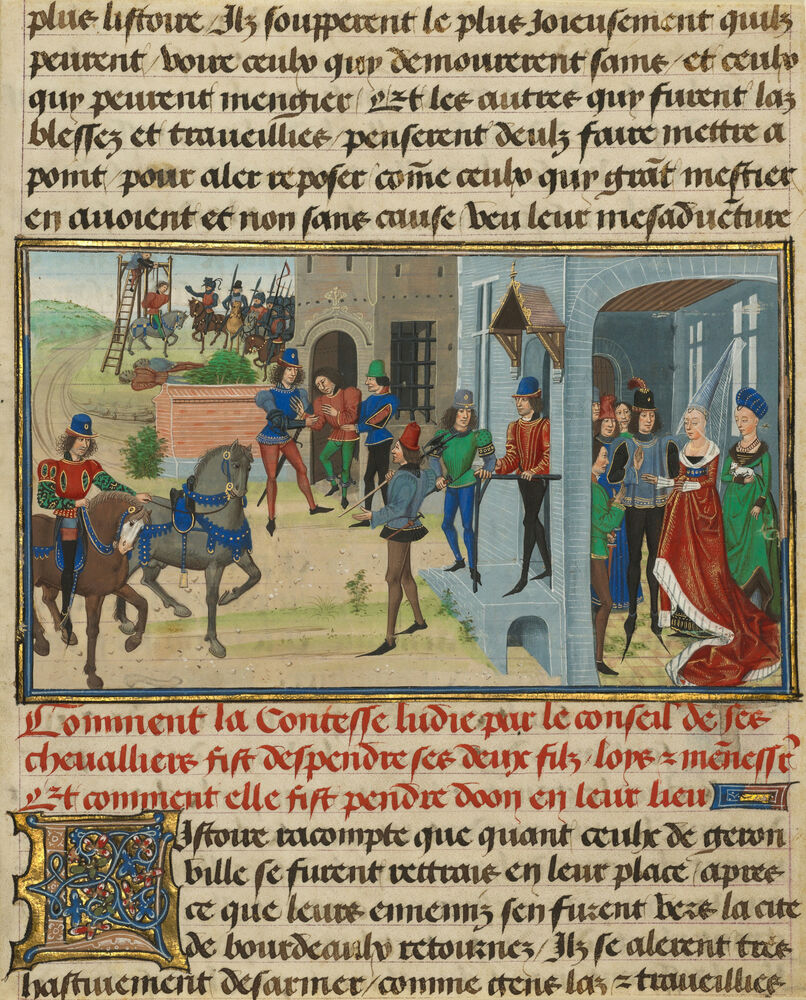 plus listoire / Ilz soupperent le plus Joieusement quilz
peurent / voire ceulx quy demourerent sains / et ceulx
quy peurent mengier / Et les autres quy furent las
blessez et traueillies / penserent deulz faire mettre a
point / pour aler reposer / come ceulx quy grat mestier
en auoient et non sans cause / veu leur mesaduēture
Comment la Contesse ludie par le conseil de ses
cheualliers fist despendre ses deux filz / loys ⁊ mēnessr
Et comment elle fist pendre doon en leur lieu
LIstoire racompte que quant ceulx de geron
ville se furent rettrais en leur place / apres
ce que leurs ennemiz sen furent vers la cite
de bourdeaulx retournez / Ilz se alerent tres
hastiuement desarmer / comme gens las ⁊ traueillies